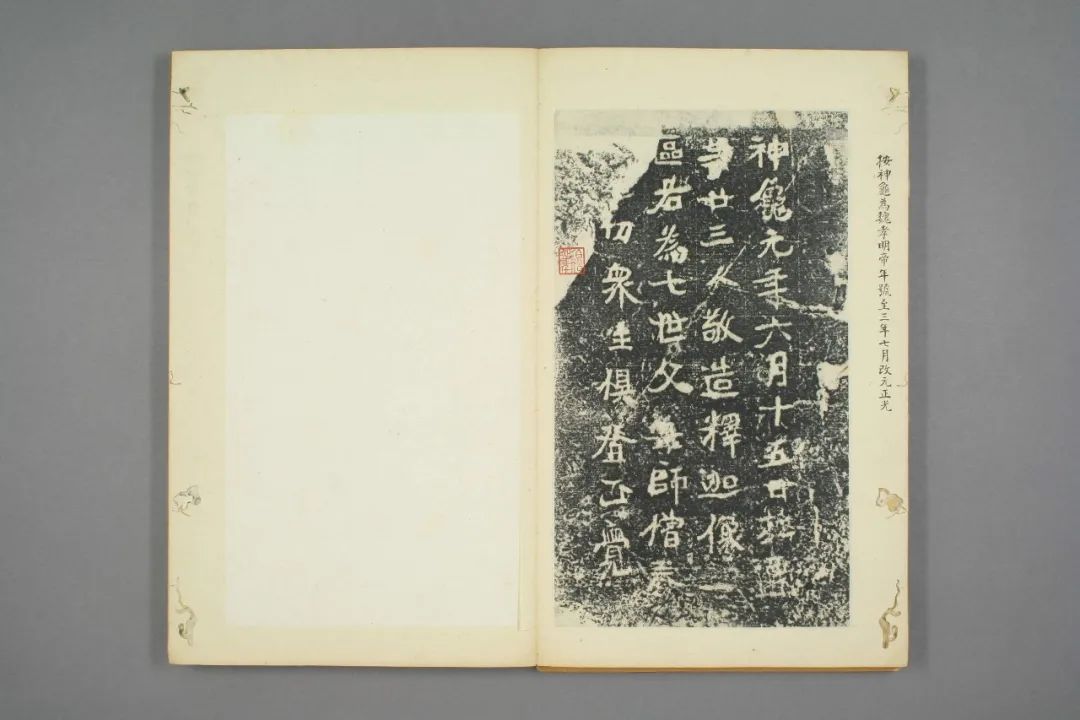 按神龜為魏孝明帝年號至三年七月改元正光
神龜元年六月十五日杜遷
等廿三人敬造釋迦像一
區若為七世父母師僧
切衆生俱登正覺